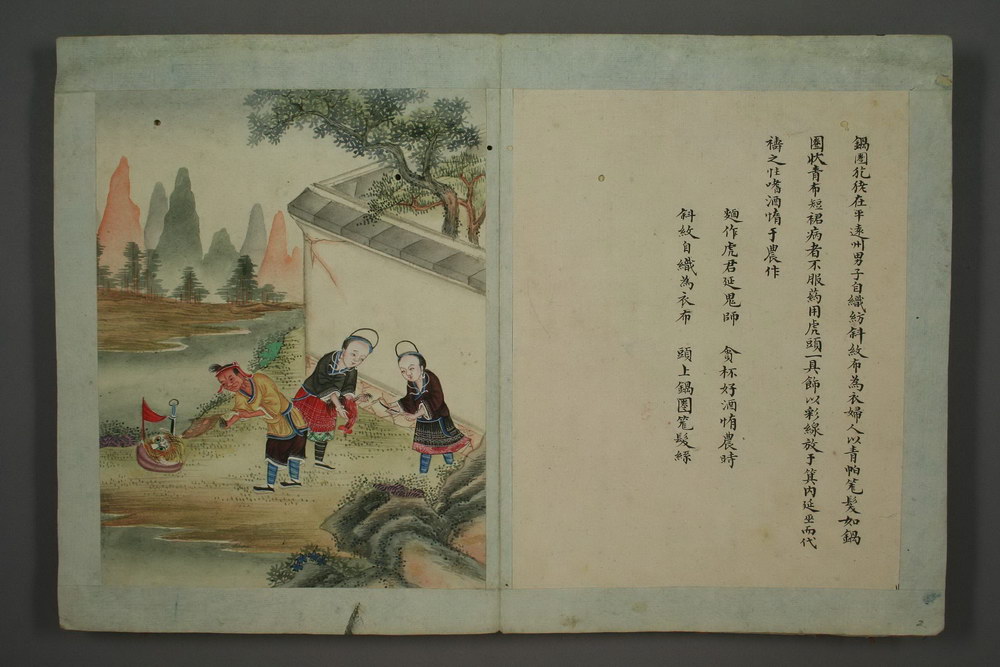 鍋圈犵狫在平遠州男子自織紡斜紋布為衣婦人以青帕籠髮如鍋
圈狀青布短裙病者不服藥用虎頭一具飾以彩線放于箕內延巫而代
禱之性嗜酒惰于農作
麵作虎君延鬼師 貪杯好酒惰農時
斜紋自織為衣布 頭上鍋圈籠髮絲
2